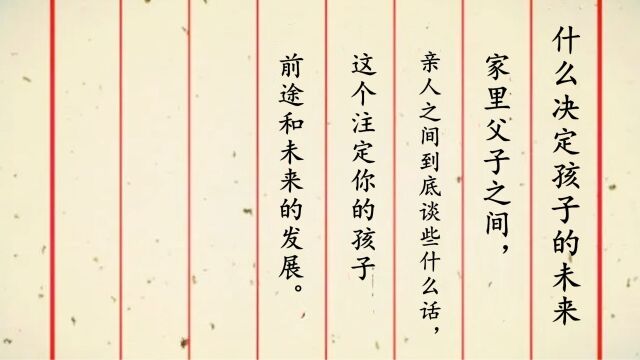 什么决定孩子的未来
家里父子之间，
亲人之间到底谈些什么话，
这个注定你的孩子
前途和未来的发展。